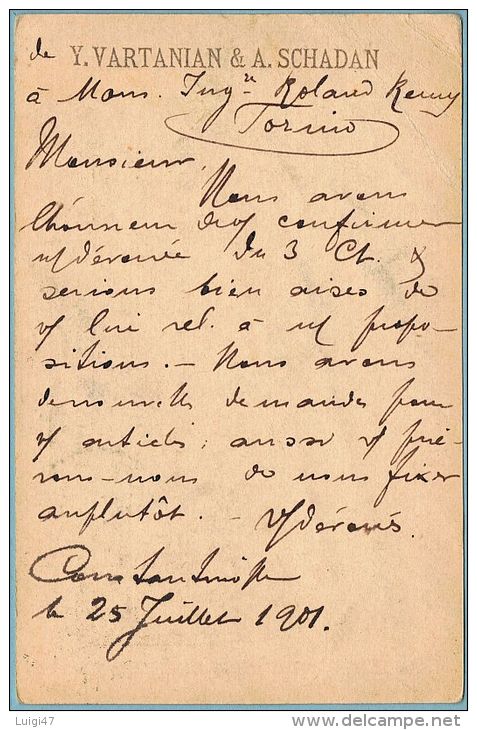 de Y. VARTANIAN & A. SCHADAN
à Mons. Ingre Roland Remy
Torino
Monsieur,
Nous avons
l'honneur de v/ confirmer
n/ dévouée du 3 Ct. &
serions bien aises de
v/ lui rel. à n/ propo-
sitions. - Nous avons
des nouvelles demandes pour
v/ articles; aussi v/ prie-
rons-nous de nous fixer
au plutôt. - V/ dévoués.
Constantinople
le 25 Juillet 1901.
Luigi47
delcampe.net